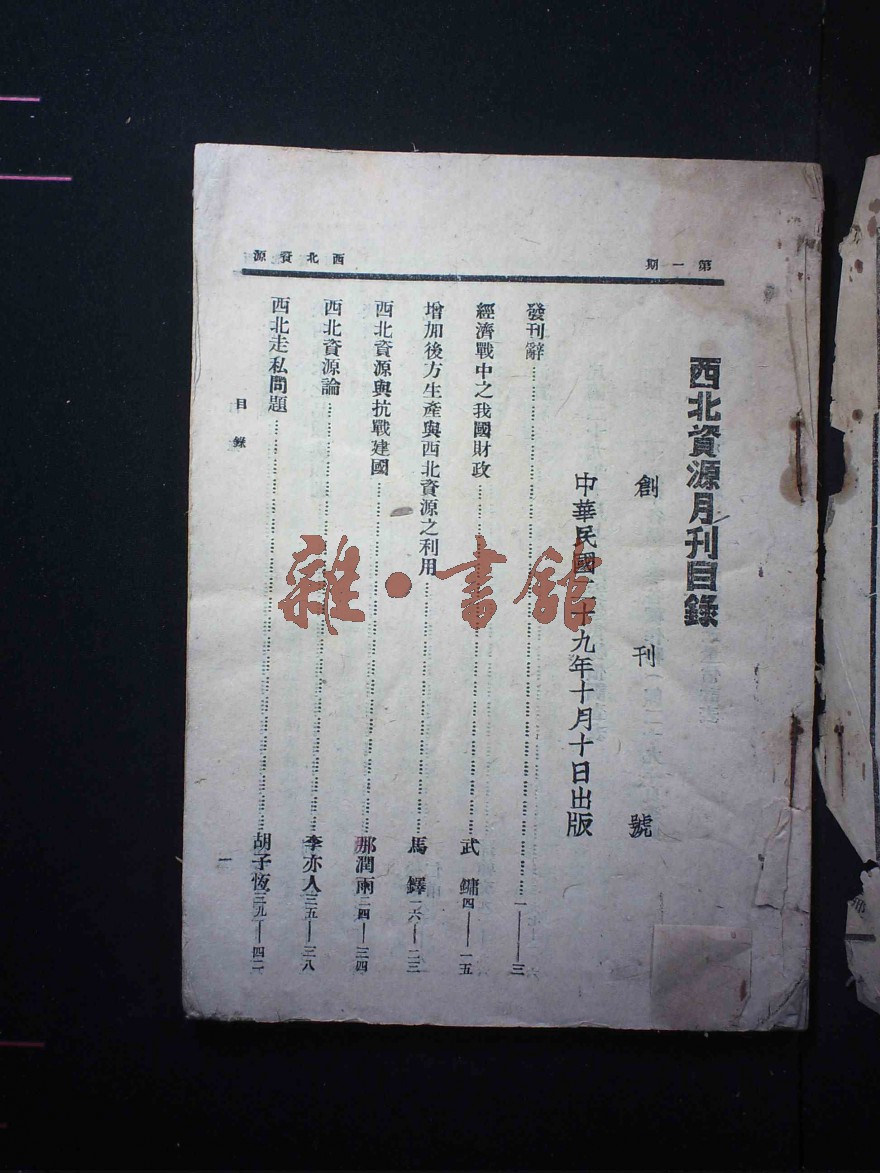 第一期
西北資源
西北資源月刊目錄
創刊號
中華民國二十九年十月十日出版
發刊辭……一——三
經濟戰中之我國財政……武鏞 四——一五
增加後方生產與西北資源之利用……馬鐸 一六——二三
西北資源與抗戰建國……那潤雨 二四——三四
西北資源論……李亦人 三五——三八
西北走私問題……胡子恆 三九——四二
目錄
一
雜·書館